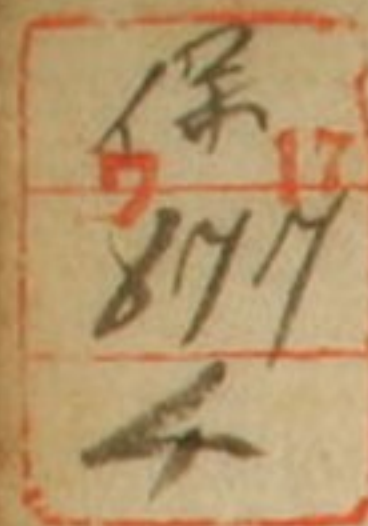 保
ワ 17
877
4